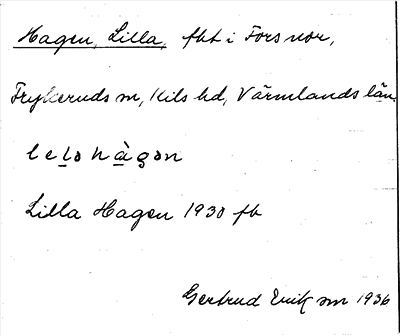 Hagen, Lilla, fht i Forsnor,
Frykeruds sn, Kils hd, Värmlands län.
lelohàgən
Lilla Hagen 1930 fb
Gertrud Erik sm 1936